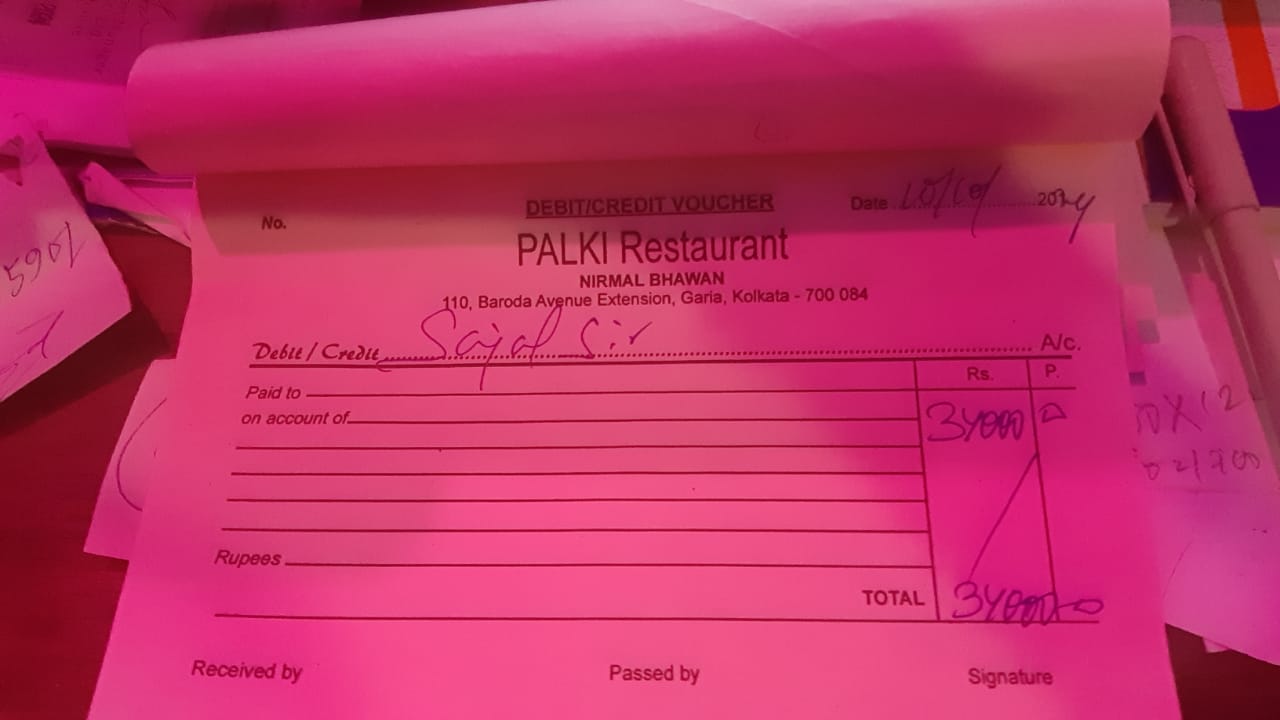 DEBIT/CREDIT VOUCHER
No.
Date 10/10/ 2024
PALKI Restaurant
NIRMAL BHAWAN
110, Baroda Avenue Extension, Garia, Kolkata - 700 084
Debit / Credit Sajal Sir A/c.
Rs. P.
Paid to
on account of 34000 0
Rupees
TOTAL 34000-0
Received by Passed by Signature